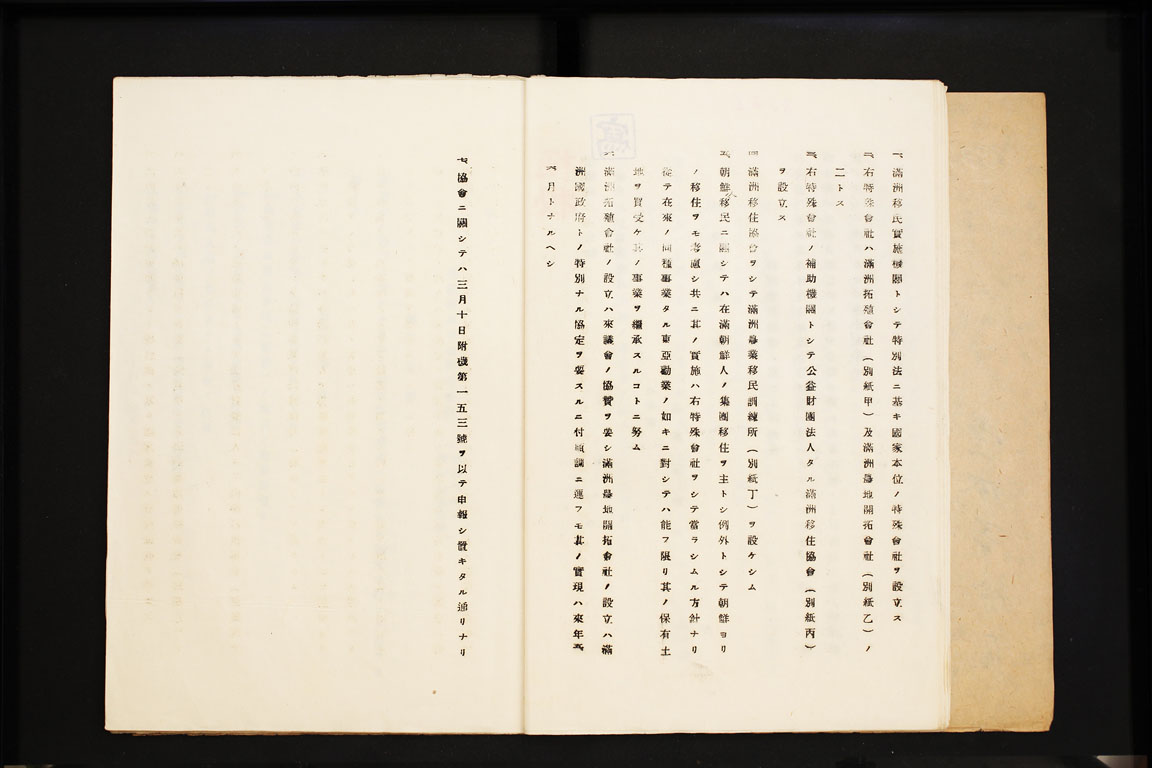 一、滿洲移民實施機關トシテ特別法ニ基キ國家本位ノ特殊會社ヲ設立ス
二、右特殊會社ハ滿洲拓殖會社(別紙甲)及滿洲農地開拓會社(別紙乙)ノ
二トス
三、右特殊會社ノ補助機關トシテ公益財團法人タル滿洲移住協會(別紙丙)
ヲ設立ス
四、滿洲移住協會ヲシテ滿洲農業移民訓練所(別紙丁)ヲ設ケシム
五、朝鮮移民ニ關シテハ在滿朝鮮人ノ集團移住ヲ主トシ例外トシテ朝鮮ヨリ
ノ移住ヲモ考慮シ共ニ其ノ實施ハ右特殊會社ヲシテ當ラシムル方針ナリ
從テ在來ノ同種事業タル東亞勸業ノ如キニ對シテハ能フ限リ其ノ保有土
地ヲ買受ケ其ノ事業ヲ繼承スルコトニ努ム
滿洲拓殖會社ノ設立ハ來議會ノ協贊ヲ要シ滿洲農地開拓會社ノ設立ハ滿
洲國政府トノ特別ナル協定ヲ要スルニ付順調ニ運フモ其ノ實現ハ來年五
六月トナルヘシ
七、協會ニ關シテハ三月十日附機第一五三號ヲ以テ申報シ置キタル通リナリ
寫